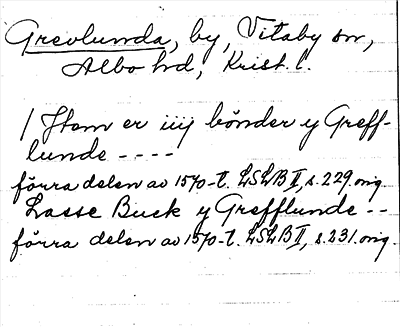 Grevlunda, by, Vitaby sn,
Albo hd, Krist. l.
/ Item er iiij bönder y Greff-
lunde ----
förra delen av 1570-t. LSLB II, s. 229. orig.
Lasse Buck y Grefflunde --
förra delen av 1570-t. LSLB II, s. 231. orig.